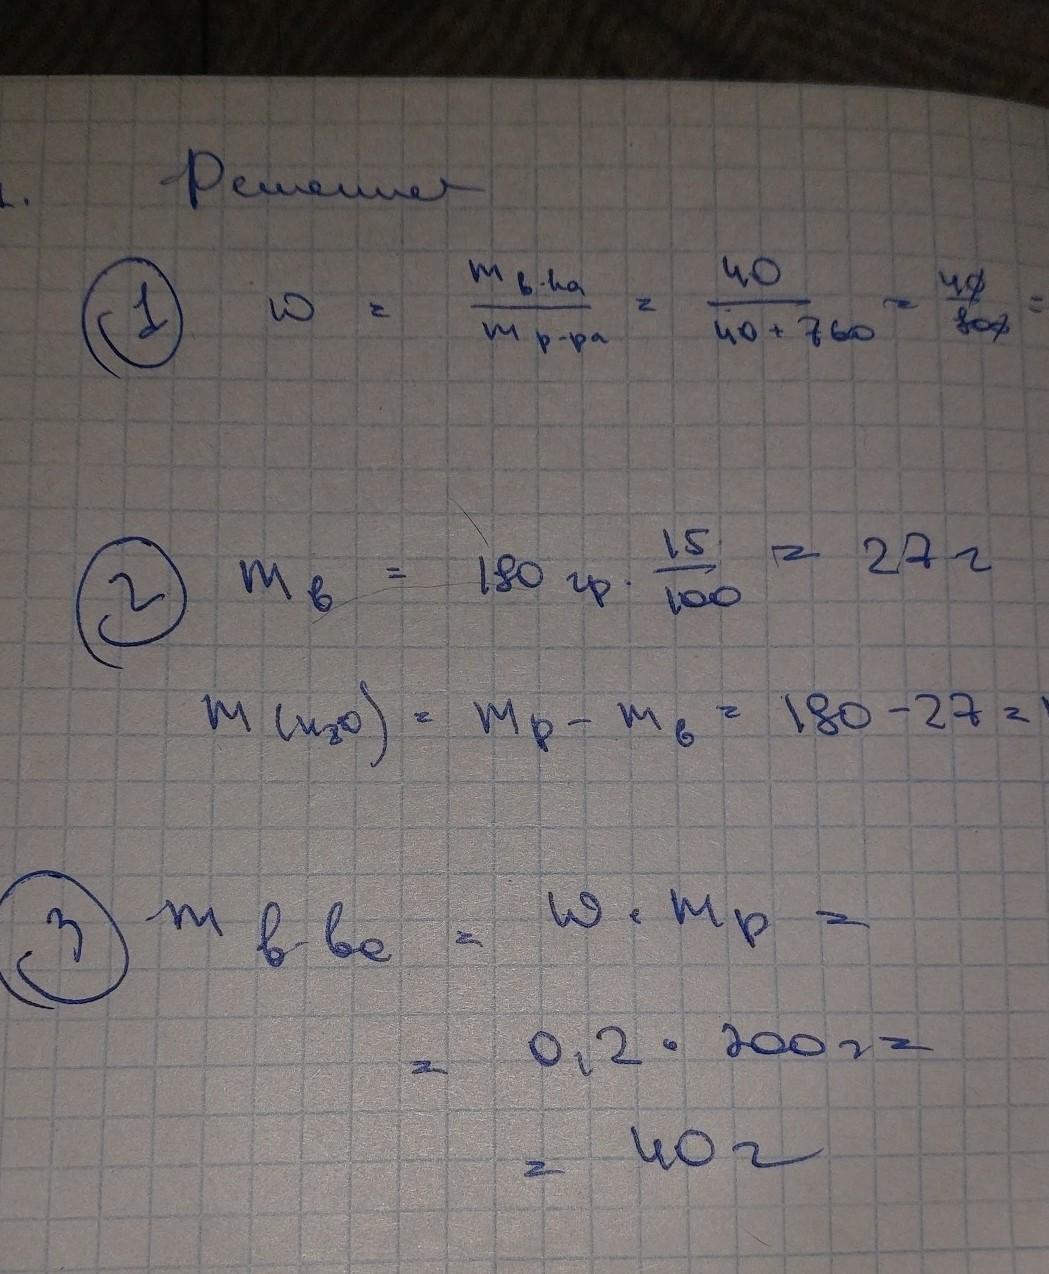 1. Решение
1 ω = m в-ва / m р-ра = 40 / 40 + 760 = 40 / 800 =
2 m в = 180 гр · 15 / 100 = 27 г
m (H2O) = m р - m в = 180 - 27 = 1
3 m в-ва = ω · m р =
= 0,2 · 200 г =
= 40 г